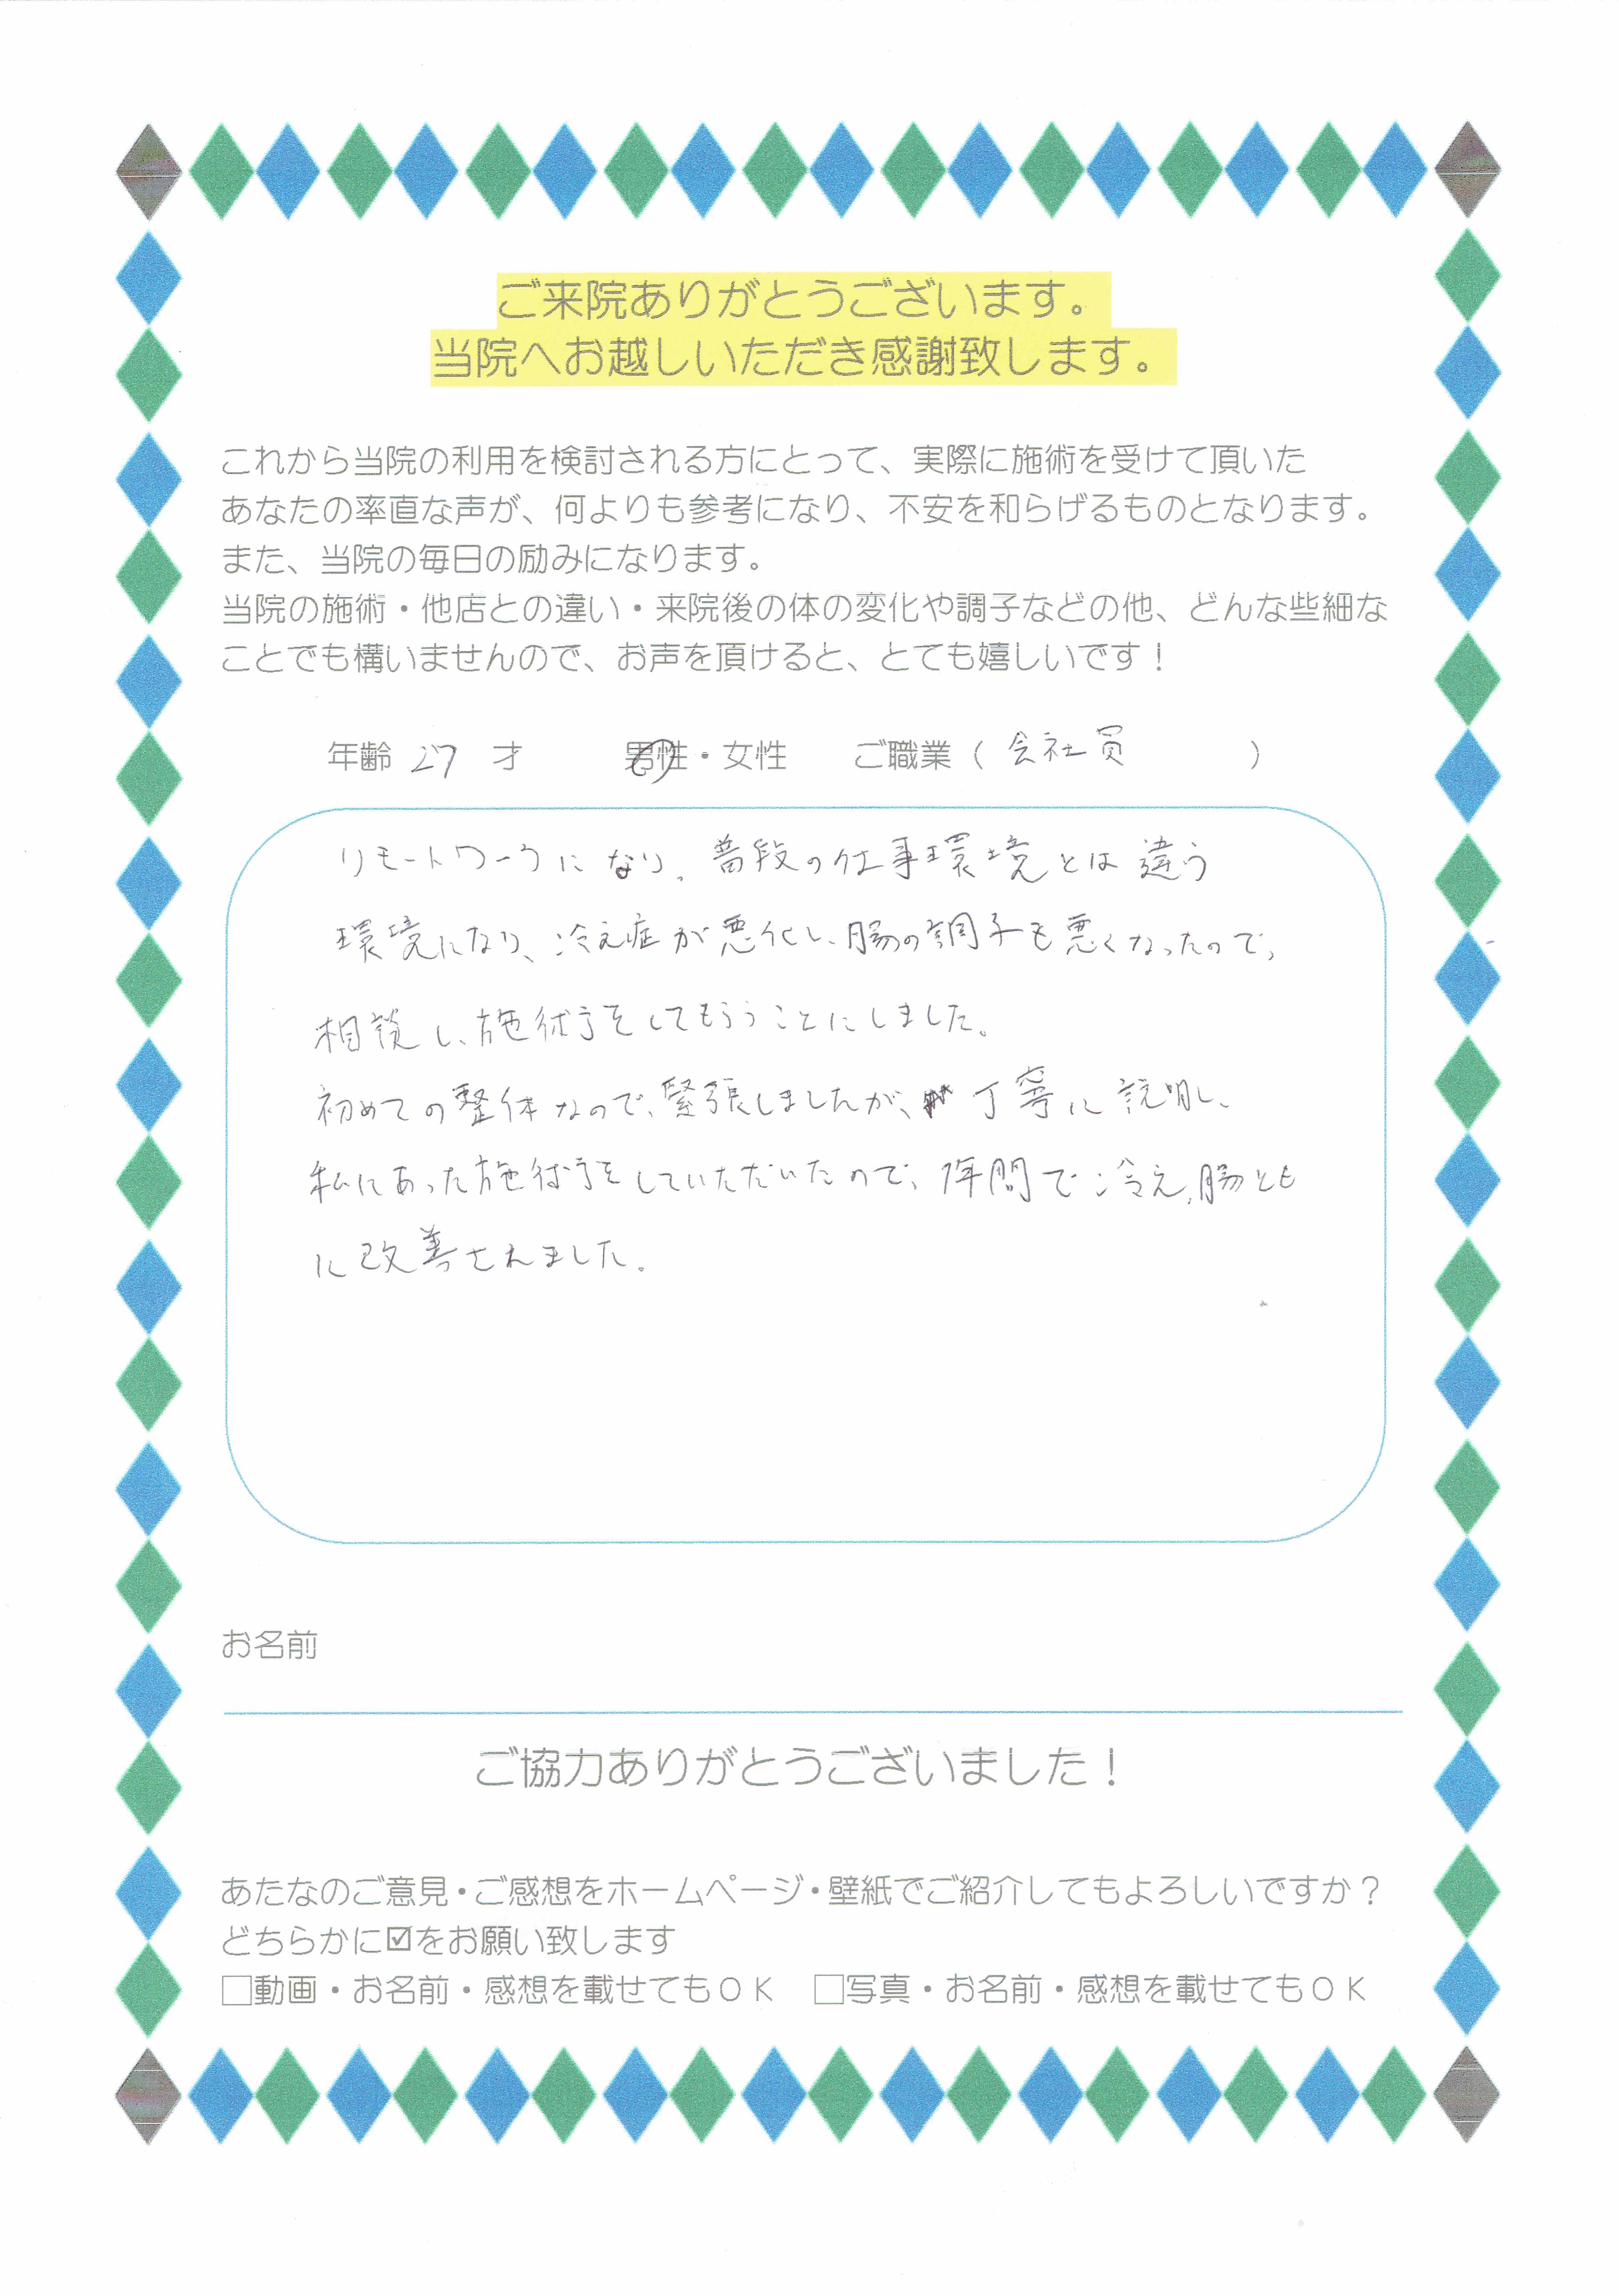 ご来院ありがとうございます。
当院へお越しいただき感謝致します。
これから当院の利用を検討される方にとって、実際に施術を受けて頂いた
あなたの率直な声が、何よりも参考になり、不安を和らげるものとなります。
また、当院の毎日の励みになります。
当院の施術・他店との違い・来院後の体の変化や調子などの他、どんな些細な
ことでも構いませんので、お声を頂けると、とても嬉しいです！
年齢 27 才 男性・女性 ご職業（ 会社員 ）
リモートワークになり、普段の仕事環境とは違う
環境になり、冷え症が悪化し、腸の調子も悪くなったので、
相談し、施術をしてもらうことにしました。
初めての整体なので、緊張しましたが、丁寧に説明し、
私にあった施術をしていただいたので、1年間で冷え、腸とも
に改善されました。
お名前
ご協力ありがとうございました！
あたなのご意見・ご感想をホームページ・壁紙でご紹介してもよろしいですか？
どちらかに☑をお願い致します
□動画・お名前・感想を載せてもＯＫ □写真・お名前・感想を載せてもＯＫ